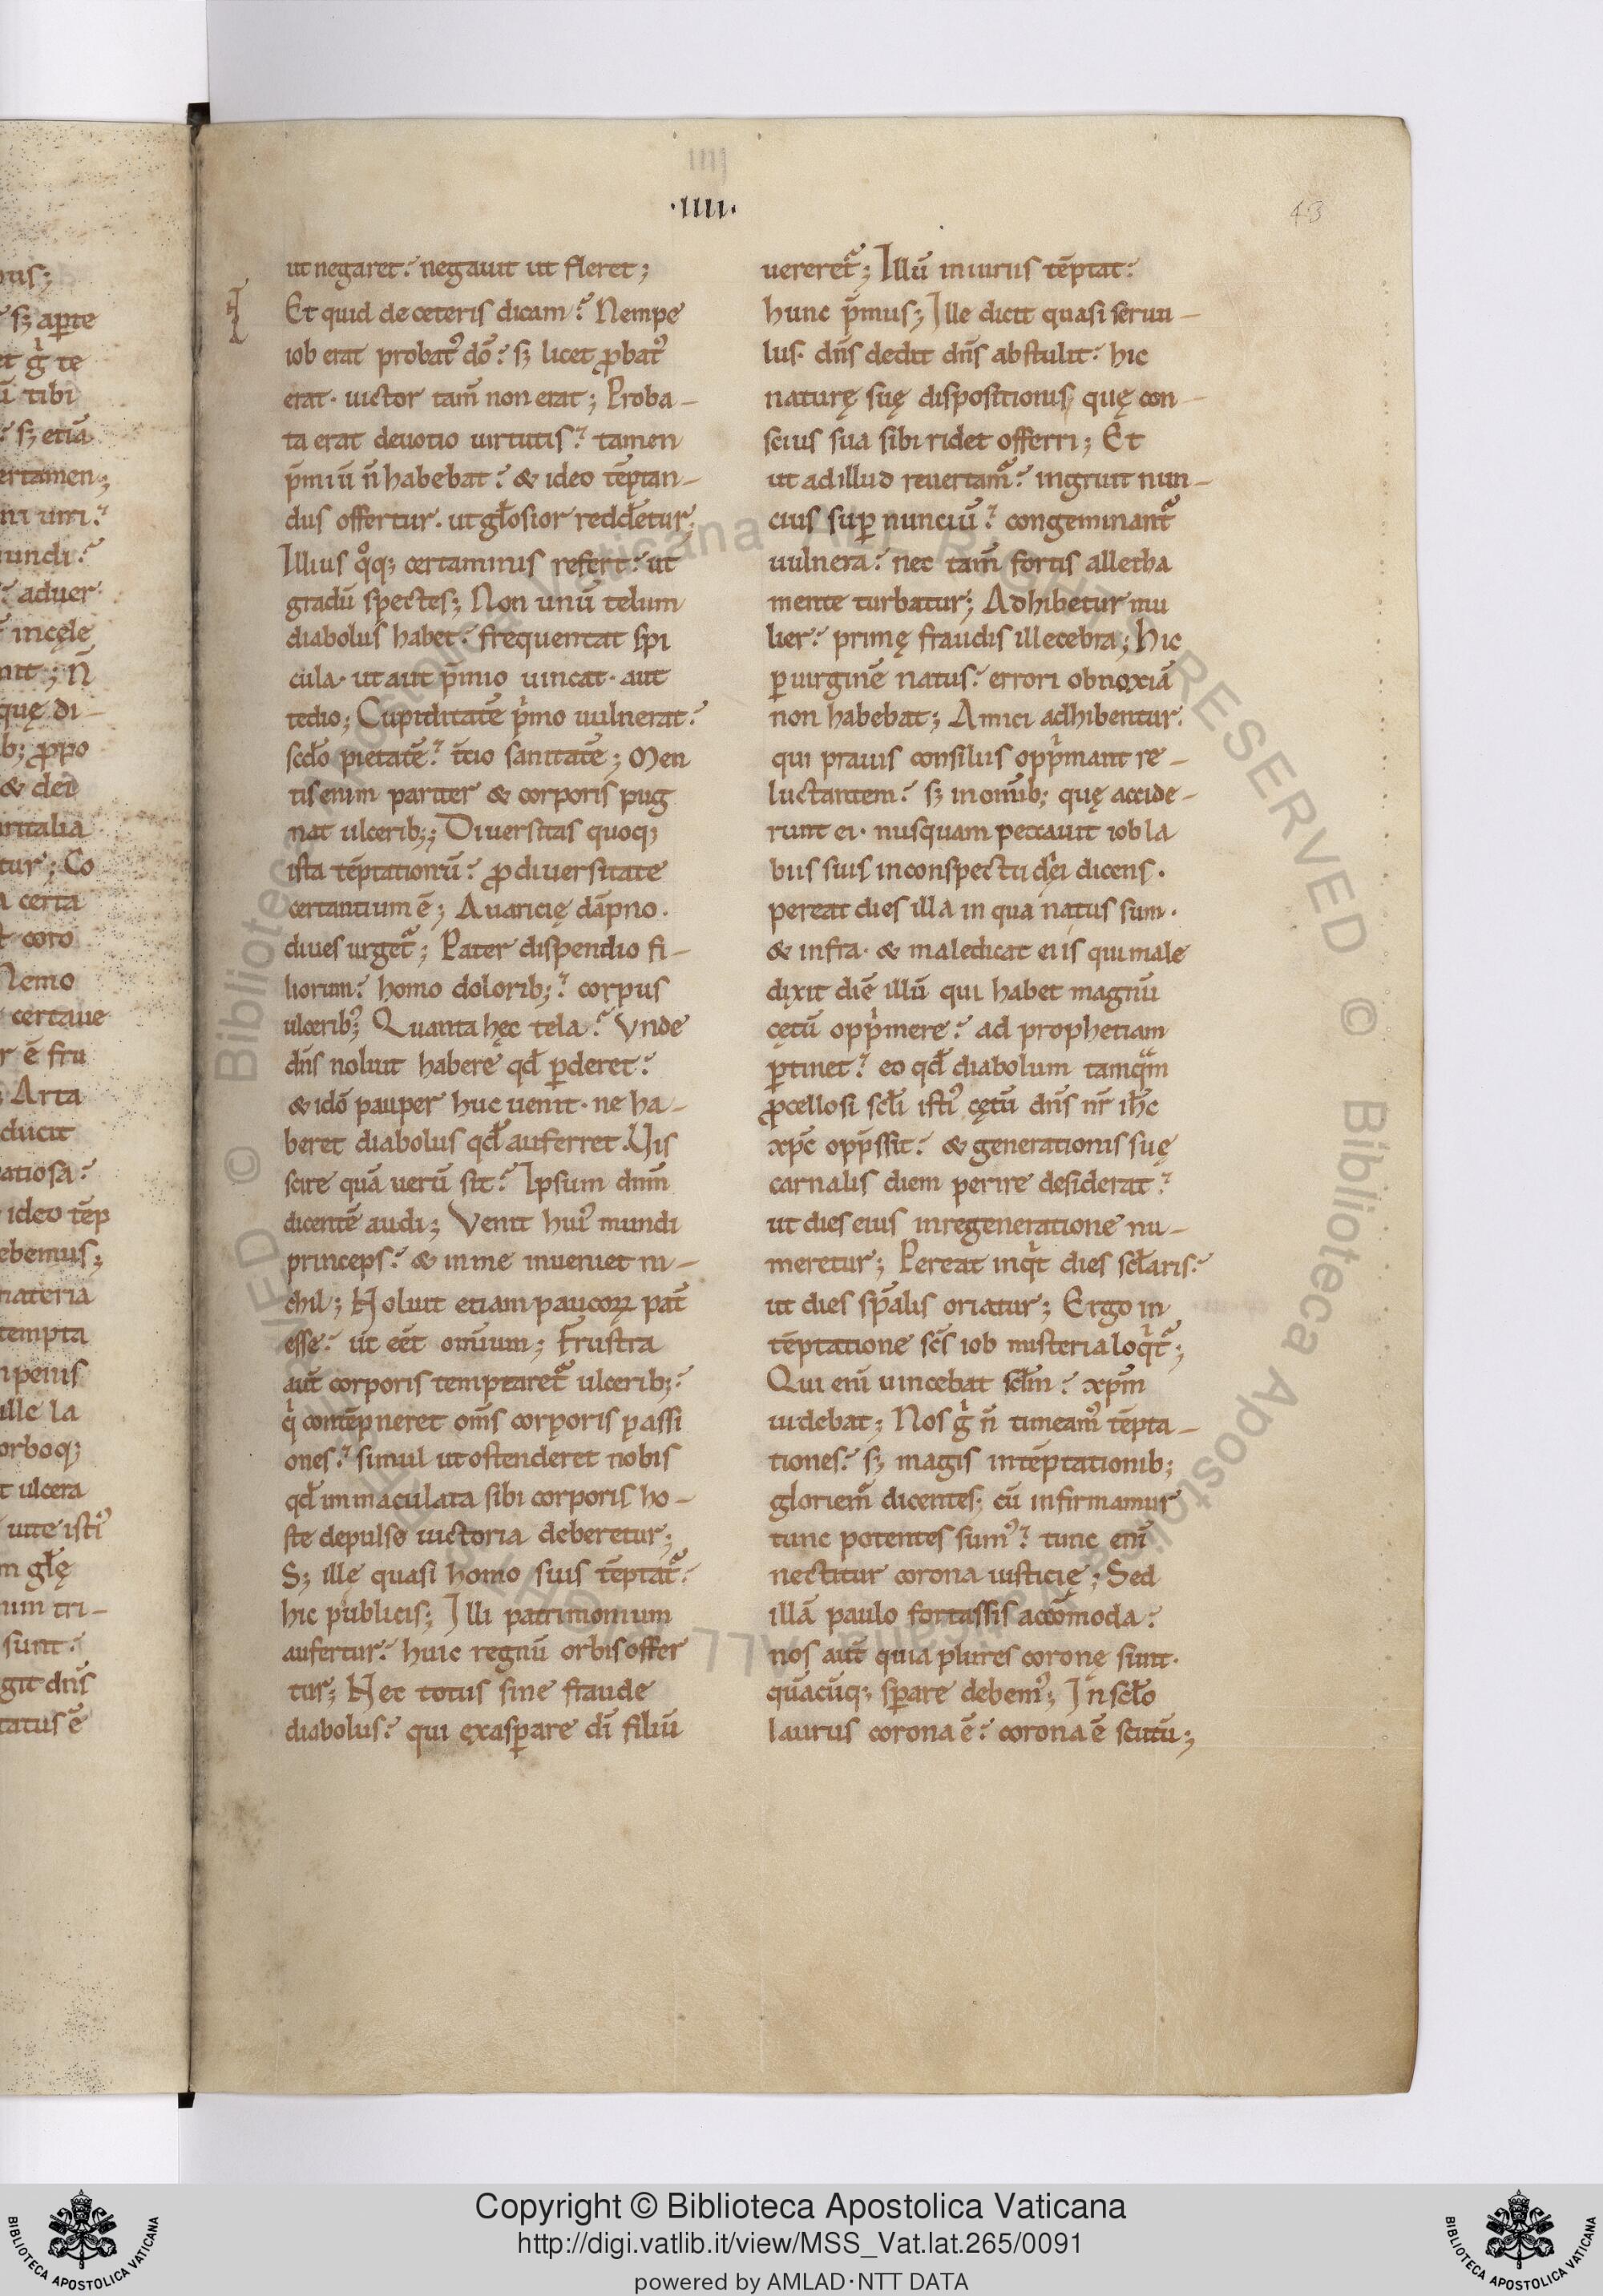 IIII
·IIII·
43
ut negaret? negauit ut fleret;
Et quid de ceteris dicam? Nempe
iob erat probatꝰ dõ? sꝫ licet ꝓbatꝰ
erat· uictor tam̃ non erat; Proba-
ta erat deuotio uirtutis? tamen
p̃miũ ñ habebat? & ideo tẽptan-
dus offertur· ut gl̃osior redd̃etur;
Illius qͦqꝫ certaminis refert? ut
gradũ spectes; Non unũ telum
diabolus habet? frequentat spi
cula· ut aut p̃mio uincat· aut
tedio; Cupiditatẽ pͥmo uulnerat?
scd̃o pietatẽ? t̃cio sanitatẽ; Men
tis enim pariter & corporis pug
nat ulcerib;; Diuersitas quoqꝫ
ista tẽptationũ? ꝓ diuersitate
certantium ẽ; Auaricię dãpno·
diues urget᷑; Pater dispendio fi-
liorum? homo dolorib;? corpus
ulcerib;; Quanta hęc tela? Vnde
dñs noluit habere qd̃ ꝑderet?
& idõ pauper huc uenit· ne ha-
beret diabolus qd̃ auferret. Vis
scire quã uerũ sit? Ipsum dnm̃
dicentẽ audi; Venit huiꝰ mundi
princeps? & in me inueniet ni-
chil; Noluit etiam paucoꝝ pat̃
esse? ut eẽt om̃ium; Frustra
aut̃ corporis temptaret᷑ ulcerib;?
qͥ contẽpneret om̃s corporis passi
ones? simul ut ostenderet nobis
qd̃ immaculata sibi corporis ho-
ste depulso uictoria deberetur;
Sꝫ ille quasi homo suis tẽptat᷑?
hic publicis; Illi patrimonium
aufertur? huic regnũ orbis offer
tur; Nec totus sine fraude
diabolus? qui exasꝑare dĩ filiũ
uereret᷑; Illũ iniuriis tẽptat?
hunc p̃mus; Ille dicit quasi seruu-
lus· dñs dedit dñs abstulit? hic
naturę suę dispositionis quę con-
scius sua sibi ridet offerri; Et
ut ad illud reuertam᷑? ingruit nun-
cius suꝑ nunciũ? congeminant᷑
uulnera? nec tam̃ fortis alletha
mente turbatur; Adhibetur mu
lier? primę fraudis illecebra; hic
ꝑ uirginẽ natus? errori obnoxiã
non habebat; Amici adhibentur·
qui prauis consiliis oppͥmant re-
luctantem? sꝫ in om̃ib; quę accide-
runt ei· nusquam peccauit iob la
biis suis in conspectu dei dicens·
pereat dies illa in qua natus sum·
& infra· & maledicat ei is qui male
dixit diẽ illũ qui habet magnũ
cętũ oppͥmere? ad prophetiam
ꝑtinet? eo qd̃ diabolum tamqᷓm
ꝓcellosi scl̃i istiꝰ cętũ dñs nr̃ ih̃c
xp̃c opp̃ssit? & generationis suę
carnalis diem perire desiderat?
ut dies eius in regeneratione nu-
meretur; Pereat inqͥt dies scl̃aris?
ut dies sp̃alis oriatur; Ergo in
tẽptatione scs̃ iob misteria loqͥt᷑;
Qui eni᷑ uincebat scl̃m? xpm̃
uidebat; Nos gͥ ñ timeamꝰ tẽpta-
tiones? sꝫ magis in tẽptationib;
gloriem᷑ dicentes; cũ infirmamur
tunc potentes sumꝰ? tunc eni᷑
nectitur corona iusticię; Sed
illã paulo fortassis accõmoda?
nos aut̃ quia plures coronę sunt·
quãcũqꝫ sꝑare debemꝰ; In scl̃o
laurus corona ẽ? corona ẽ scutũ;
Copyright © Biblioteca Apostolica Vaticana
http://digi.vatlib.it/view/MSS_Vat.lat.265/0091
powered by AMLAD·NTT DATA
BIBLIOTECA APOSTOLICA VATICANA
BIBLIOTECA APOSTOLICA VATICANA